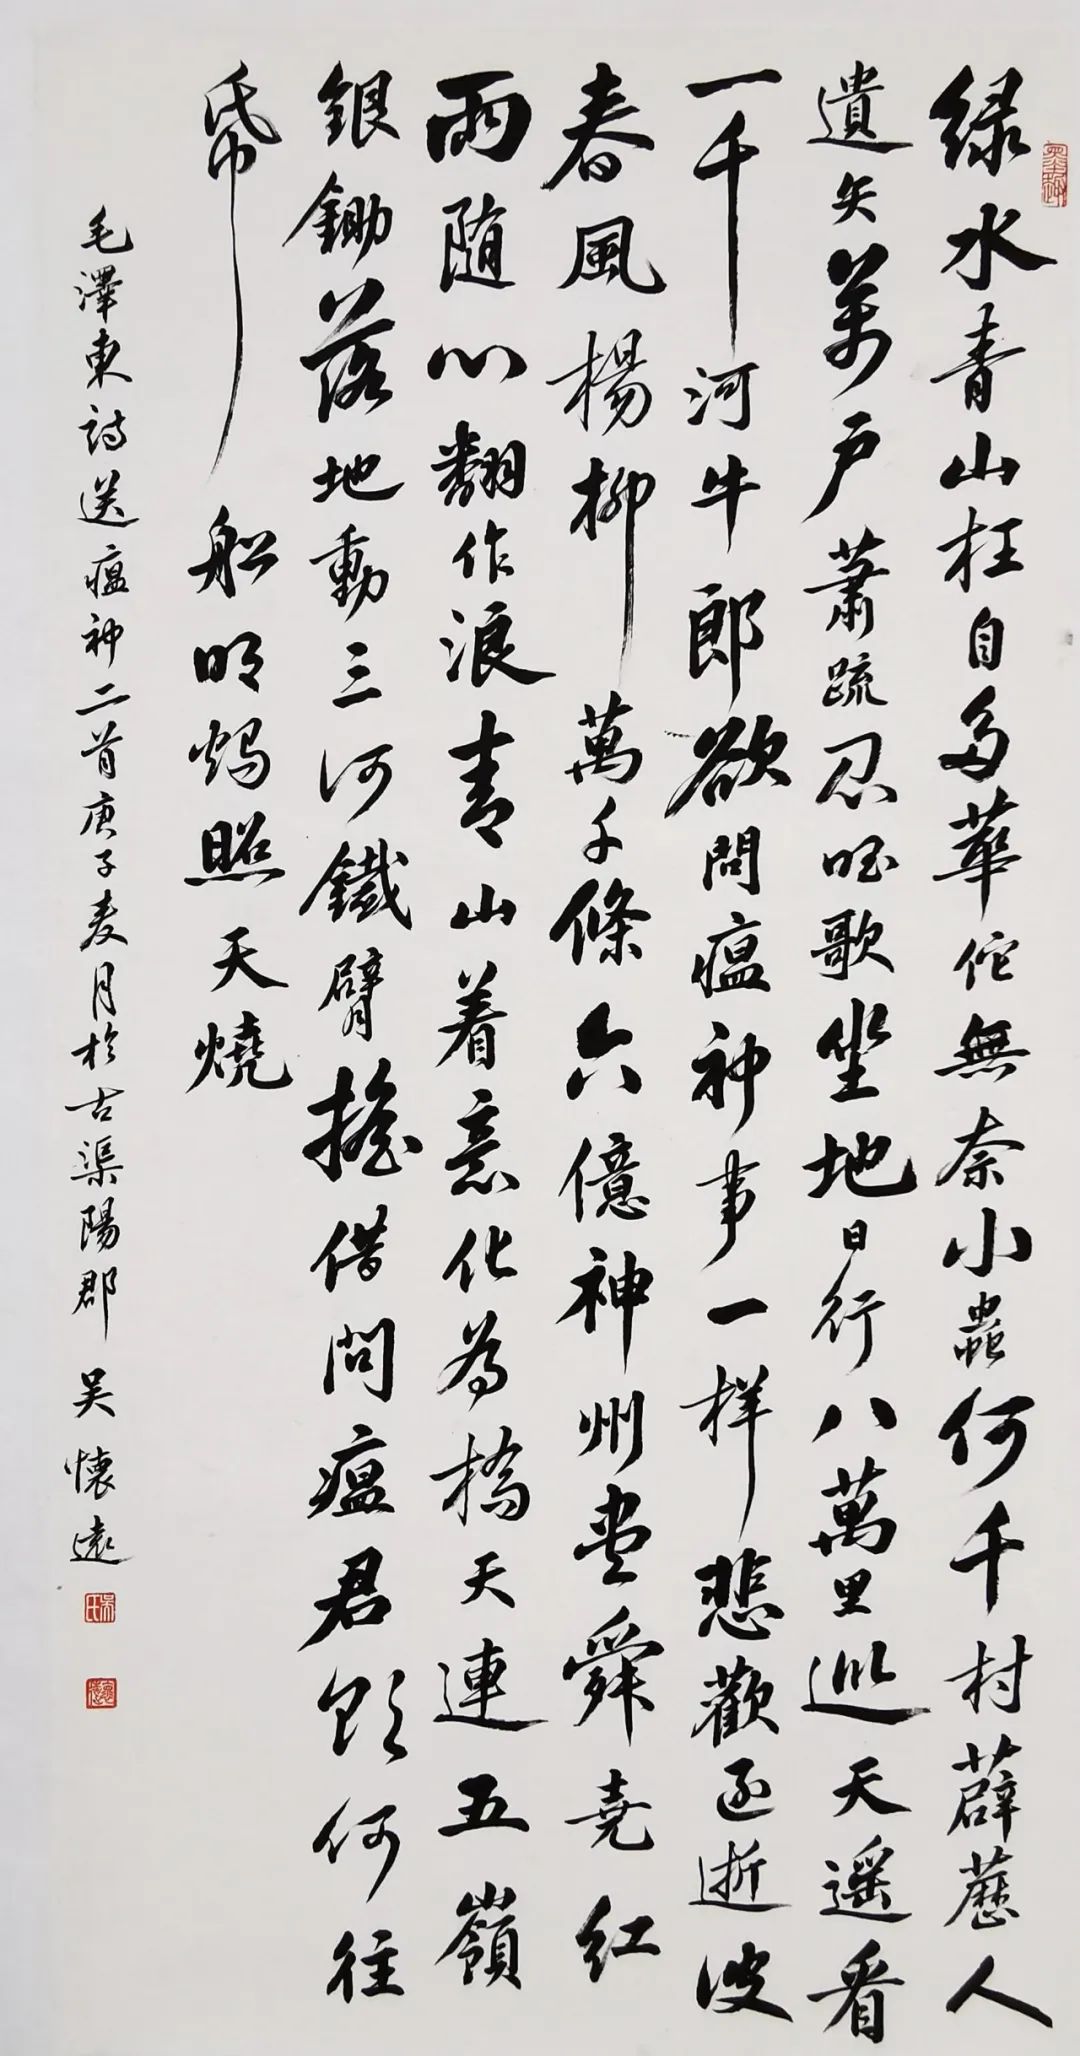 绿水青山枉自多華佗無奈小蟲何千村薜藶人
遺矢萬户蕭疏鬼唱歌坐地日行八萬里巡天遥看
一千河牛郎欲問瘟神事一样悲歡逐逝波
春風楊柳萬千條六億神州盡舜堯紅
雨随心翻作浪青山着意化為橋天連五嶺
銀鋤落地動三河鐵臂搖借問瘟君欲何往
帋船明燭照天燒
毛澤東詩送瘟神二首庚子麦月於古渠陽郡吴懷遠